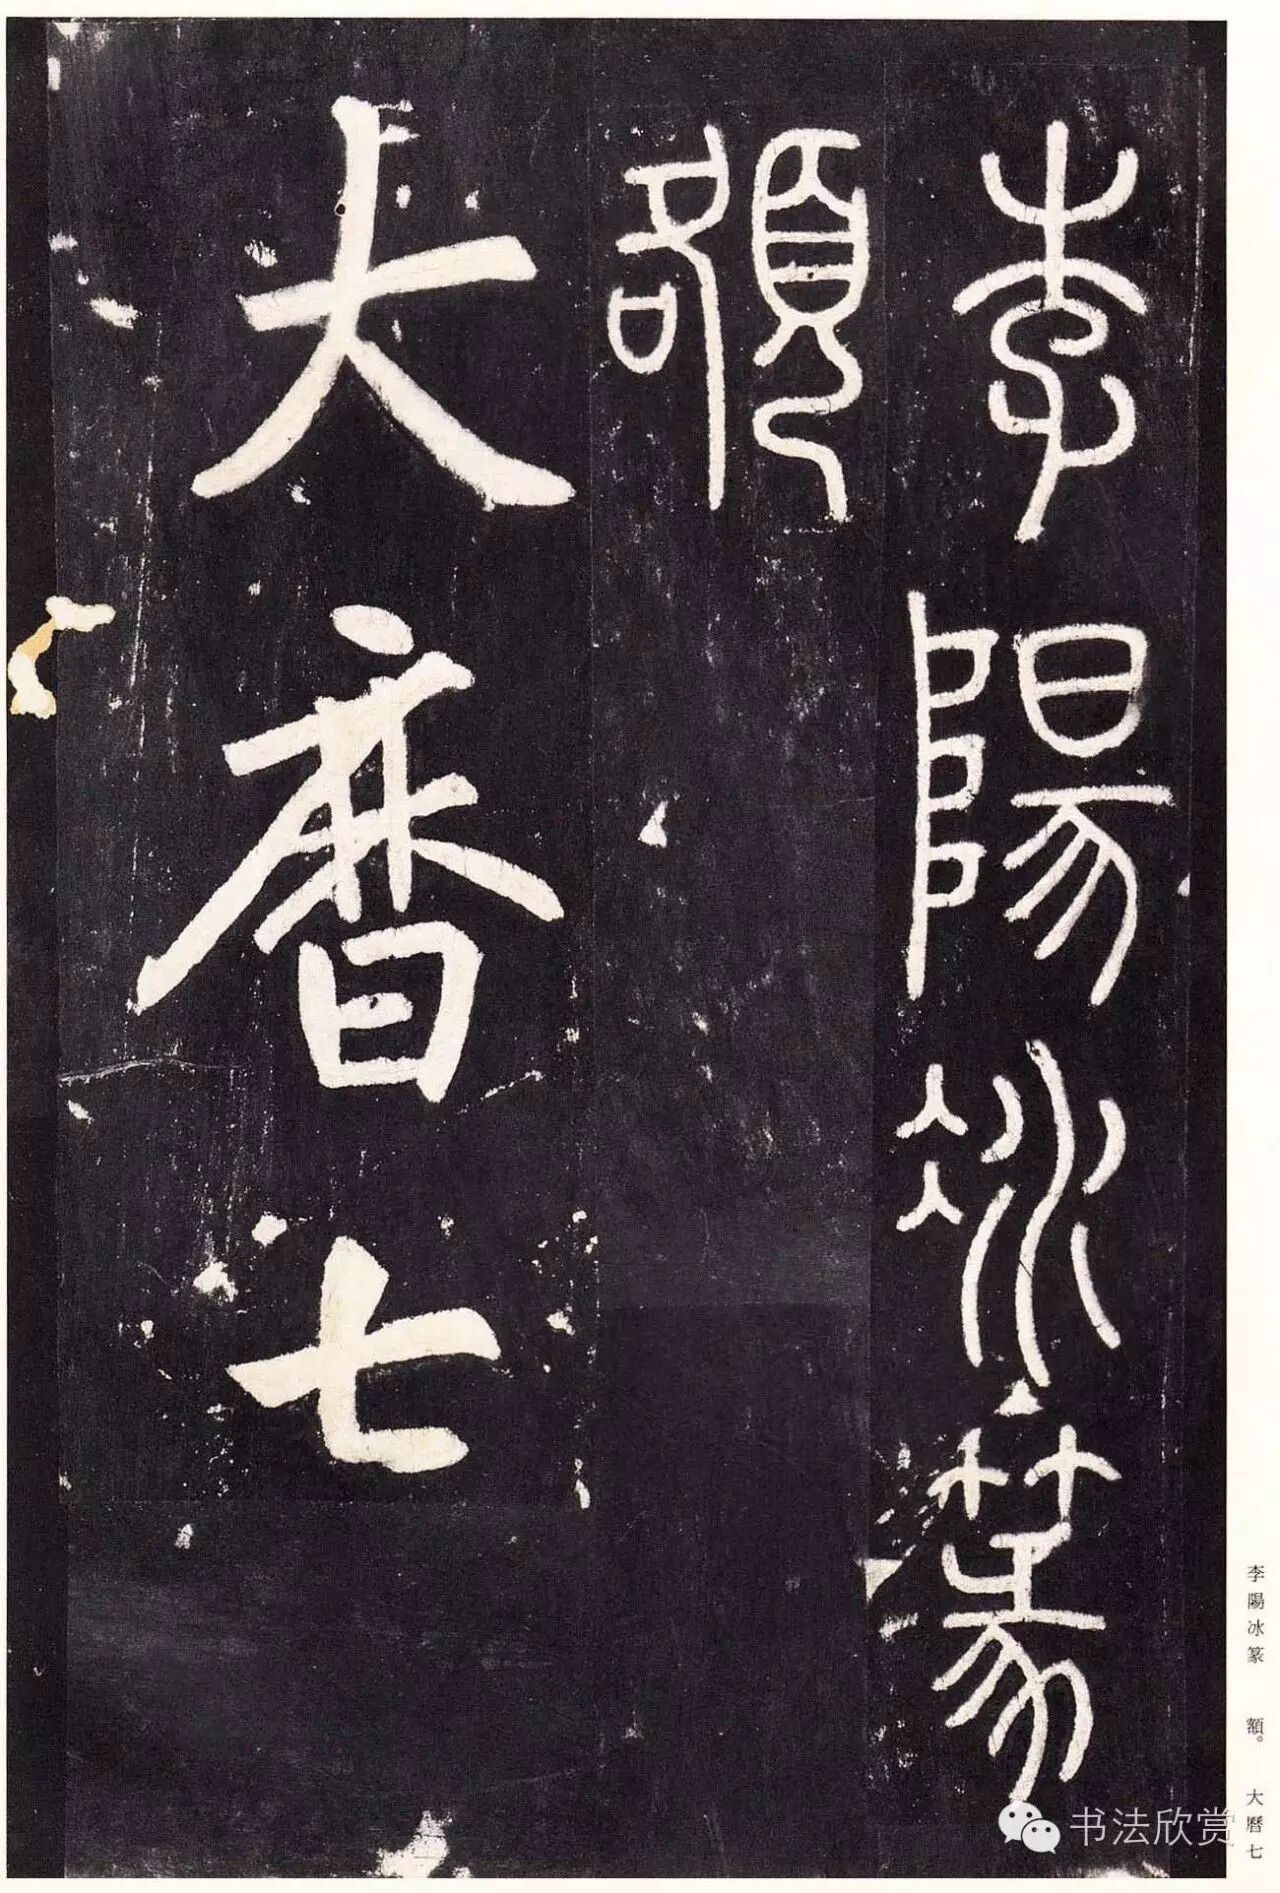 李陽冰篆
額
大曆七
李陽冰篆 額。 大曆七
书法欣赏